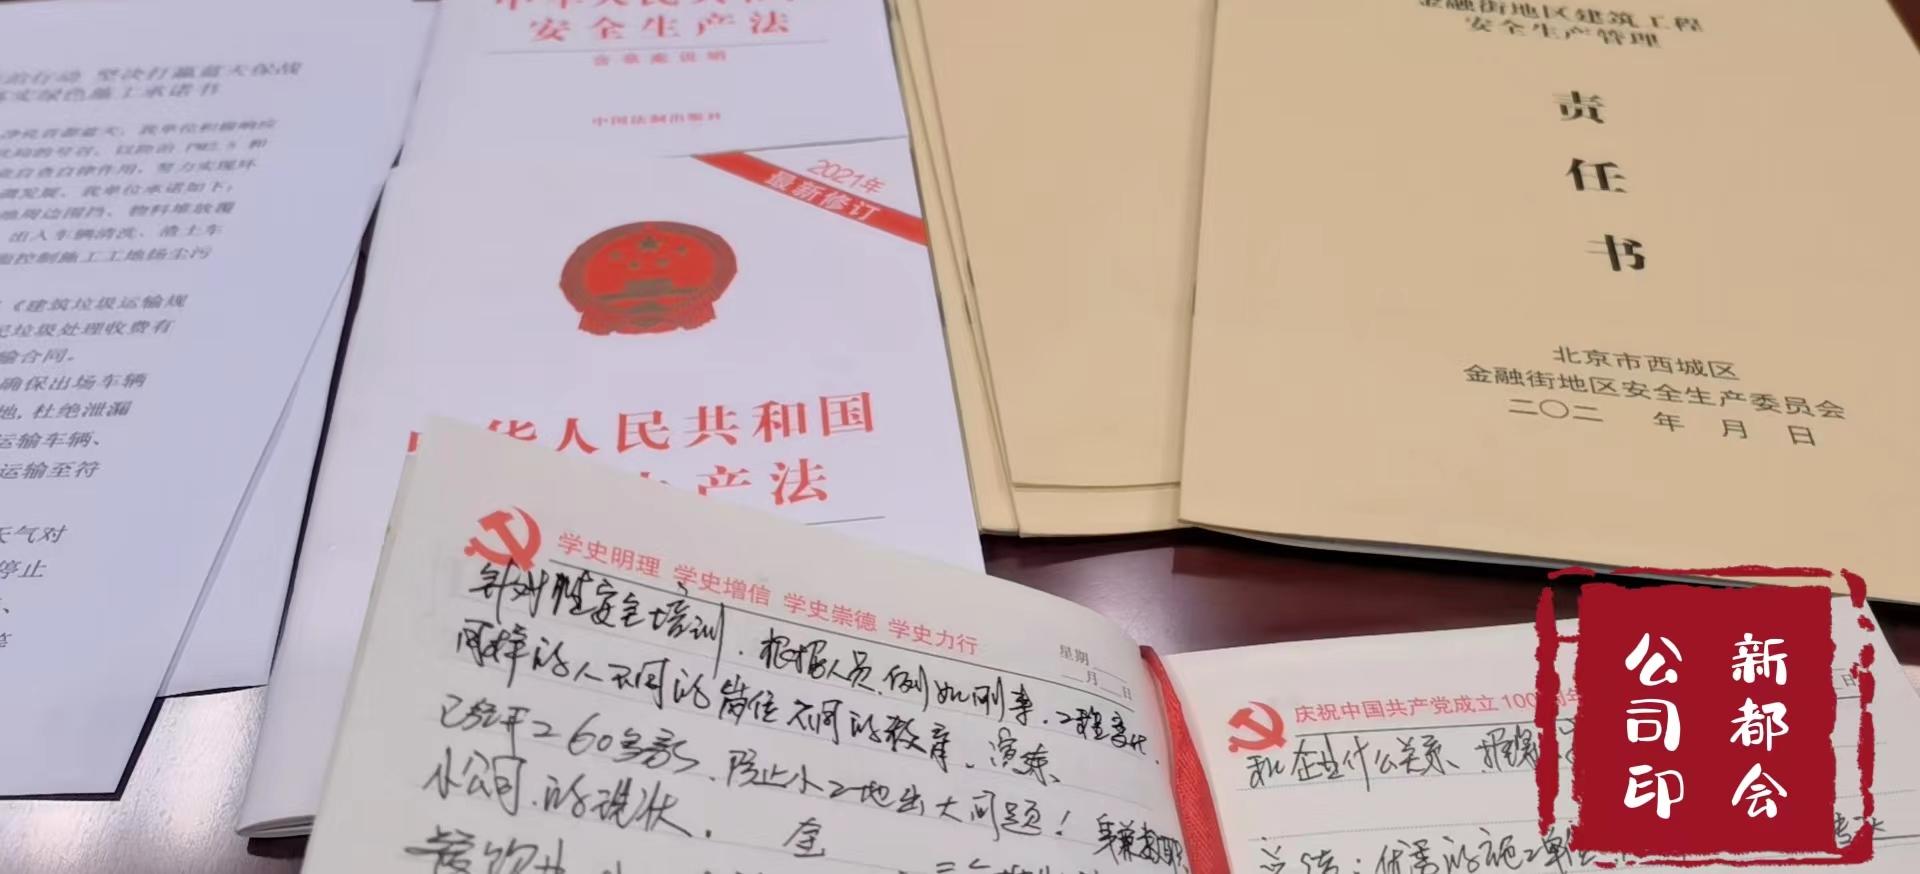 治行动 坚决打赢蓝天保战
落实绿色施工承诺书
净化首都蓝天，我单位积极响应
的号召，以防治 PM2.5 和
业自查自律作用，努力实现环
调发展，我单位承诺如下：
地周边围挡、物料堆放覆
出入车辆清洗、渣土车
面控制施工工地扬尘污
《建筑垃圾运输规
圾处理收费有
输合同。
确保出场车辆
地，杜绝泄漏
运输车辆、
运输至符
天气对
停止
中华人民共和国
安全生产法
含草案说明
中国法制出版社
2021年
最新修订
中华人民共和国
生产法
金融街地区建筑工程
安全生产管理
责
任
书
北京市西城区
金融街地区安全生产委员会
二〇二 年 月 日
学史明理 学史增信 学史崇德 学史力行
星期
月 日
针对性安全培训，根据人员、例如刑事、工程
同样的人不同的岗位不同的教育、演练、
已经开工60多家，防止小工地出大问题！
小公司的现状。
庆祝中国共产党成立100周年
和企业什么关系、
总结：优秀的施工单位
新都会
公司印